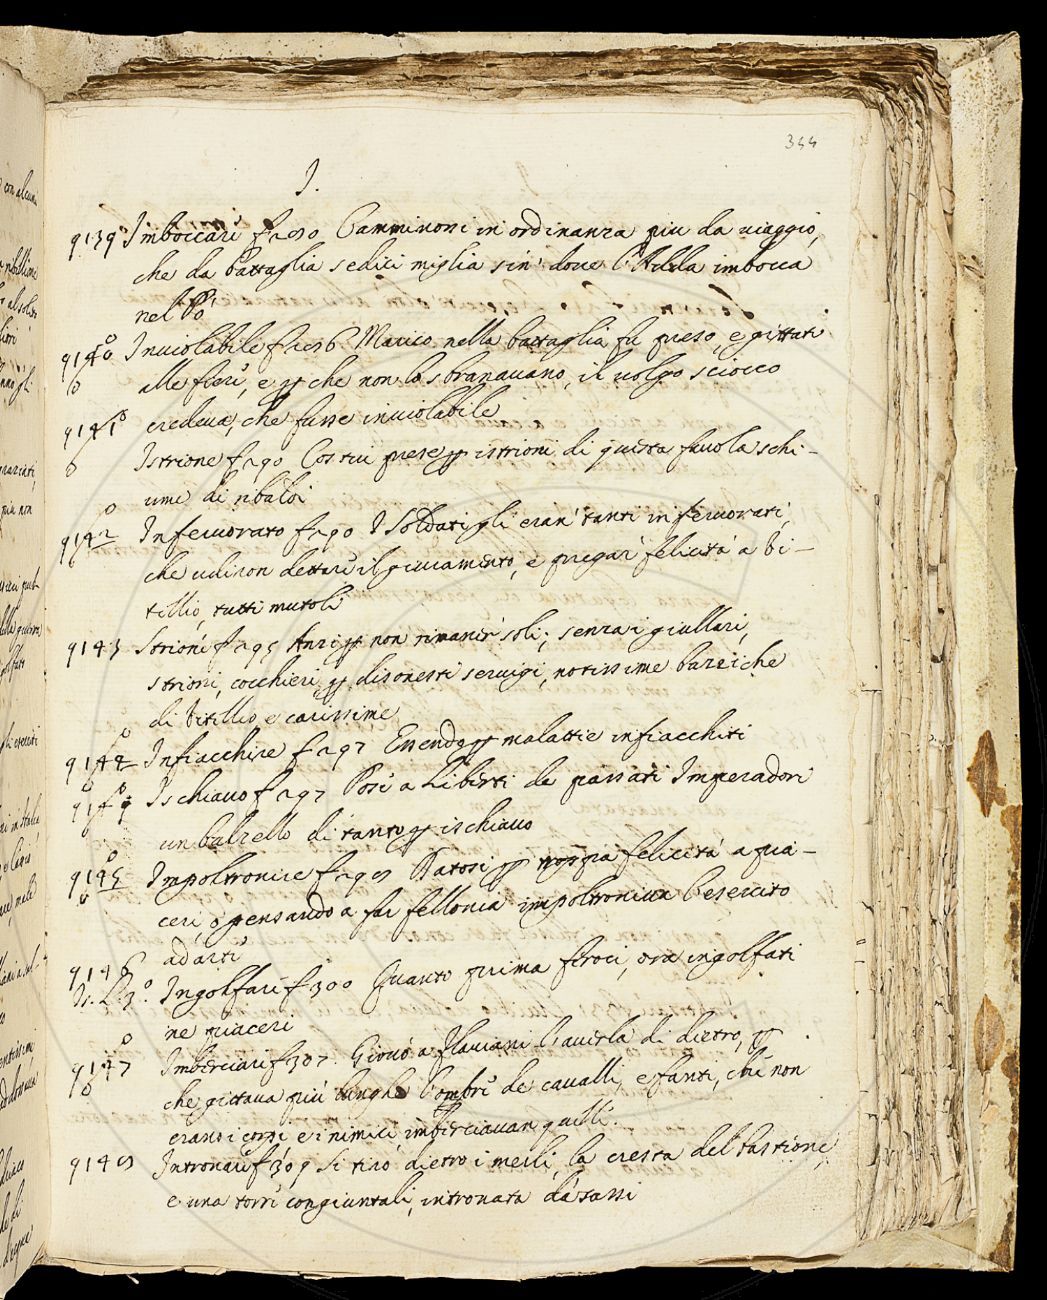 344
I.
9139 Imboccare f 290 Camminoni in ordinanza piu da uiaggio,
che da battaglia sedici miglia sin' doue l'Adda imbocca
nel Pò
9140 Inuiolabile f 296 Marico nella battaglia fu preso, e gittati
alle fiere, e ꝑ che non lo sbranauano, il uolgo sciocco
credeua, che fusse inuiolabile
9141 Istrione f 290 Costui prese ꝑ istrioni di questa fauola schi-
ume di ribaldi
9142 Inferuorato f 290 I Soldati gli eran' tanti inferuorati,
che udiron dettare il giuramento, e pregar' felicità a Vi-
tellio, tutti mutoli
9143 Strioni f 295 Anzi ꝑ non rimanir' soli, senza i giullari,
strioni, cocchieri, ꝑ disonesti seruigi, notissime bazziche
di Vitellio, e carissime
9144 Infiacchire f 297 Essendo ꝑ malattie infiacchiti
Ischiauo f 297 Pose a Liberti de passati Imperadori
un balzello di tanto ꝑ ischiauo
9145 Impoltronire f 299 Datosi ꝑ troppa felicità a pia-
ceri o pensando a far fellonia impoltroniua l'esercito
ad arte
9146 Ingolfare f 300 Quanto prima feroci, ora ingolfati
ne piaceri
9147 Imberciare f 307. Giouò a Flauiani l'auerla di dietro, ꝑ
che gittaua più lunghe l'ombre de caualli, e fanti, che non
erano i corpi e i nimici imberciauan quelli.
9148 Intronare f 309 Si tirò dietro i merli, la cresta del bastione,
e una torre congiuntali, intronata da sassi